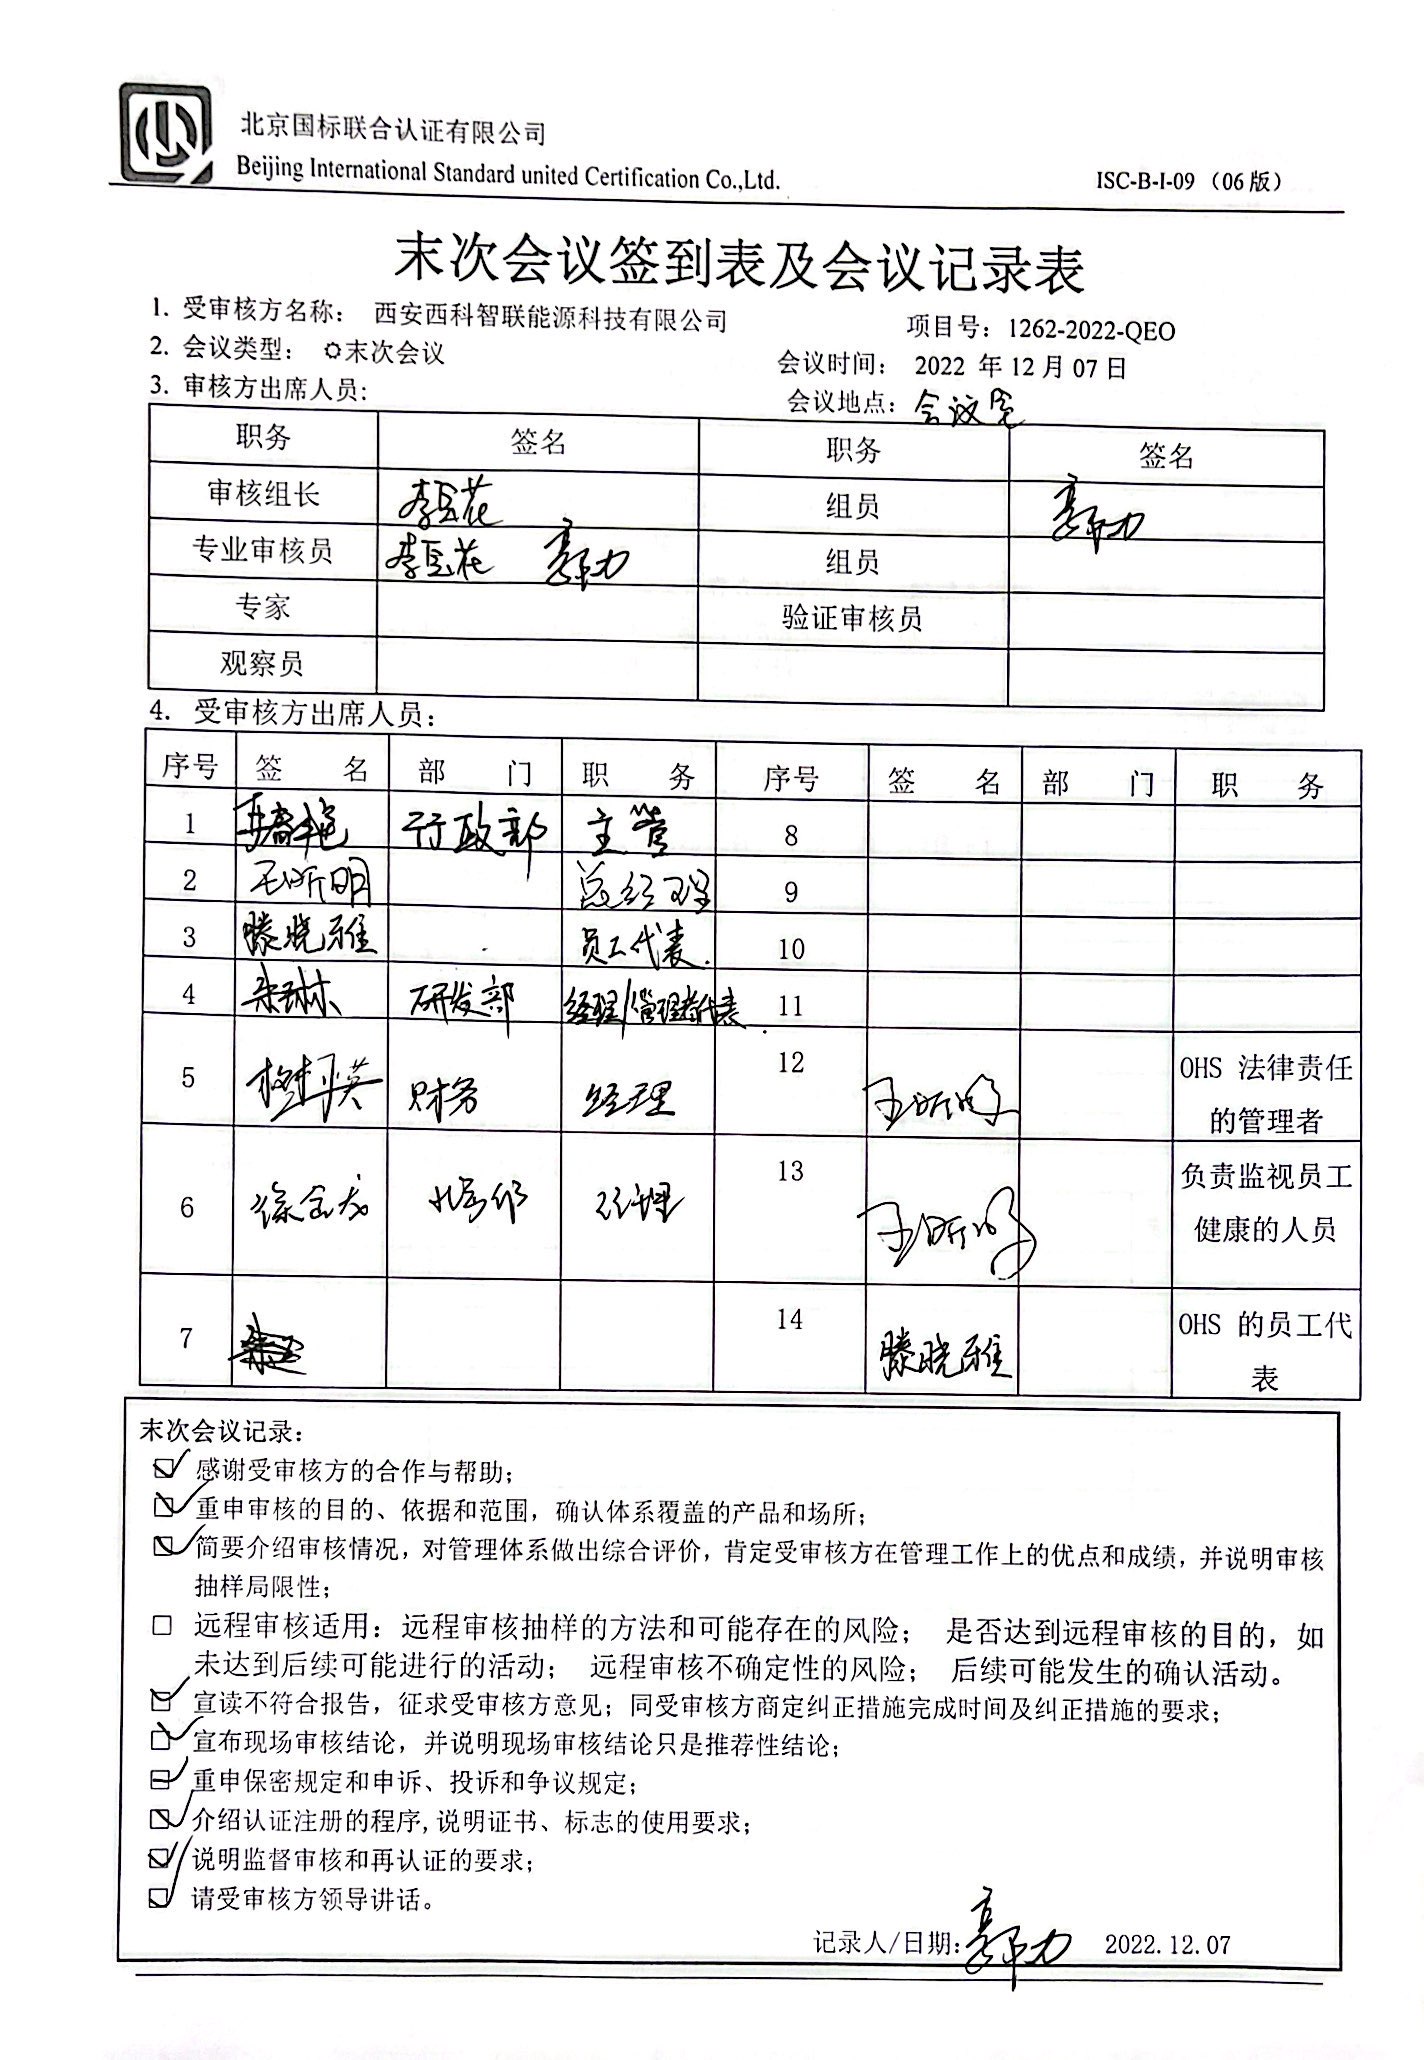 北京国标联合认证有限公司
Beijing International Standard united Certification Co.,Ltd.
ISC-B-I-09（06版）
末次会议签到表及会议记录表
1. 受审核方名称： 西安西科智联能源科技有限公司 项目号：1262-2022-QEO
2. 会议类型： 末次会议 会议时间： 2022 年 12 月 07 日
3. 审核方出席人员: 会议地点：会议室
职务 签名 职务 签名
审核组长 李 花 组员 郭力
专业审核员 李 花 郭力 组员
专家 验证审核员
观察员
4. 受审核方出席人员：
序号 签 名 部 门 职 务 序号 签 名 部 门 职 务
1 行政部 主管 8
2 王昕明 总经理 9
3 滕晓雅 员工代表 10
4 研发部 经理/管理者代表 11
5 财务 经理 12 王昕明 OHS 法律责任
的管理者
6 徐 经理 13 王昕明 负责监视员工
健康的人员
7 14 滕晓雅 OHS 的员工代
表
末次会议记录：
感谢受审核方的合作与帮助；
重申审核的目的、依据和范围，确认体系覆盖的产品和场所；
简要介绍审核情况，对管理体系做出综合评价，肯定受审核方在管理工作上的优点和成绩，并说明审核
抽样局限性；
远程审核适用：远程审核抽样的方法和可能存在的风险； 是否达到远程审核的目的，如
未达到后续可能进行的活动； 远程审核不确定性的风险； 后续可能发生的确认活动。
宣读不符合报告，征求受审核方意见；同受审核方商定纠正措施完成时间及纠正措施的要求；
宣布现场审核结论，并说明现场审核结论只是推荐性结论；
重申保密规定和申诉、投诉和争议规定；
介绍认证注册的程序,说明证书、标志的使用要求；
说明监督审核和再认证的要求；
请受审核方领导讲话。
记录人/日期：郭力 2022.12.07